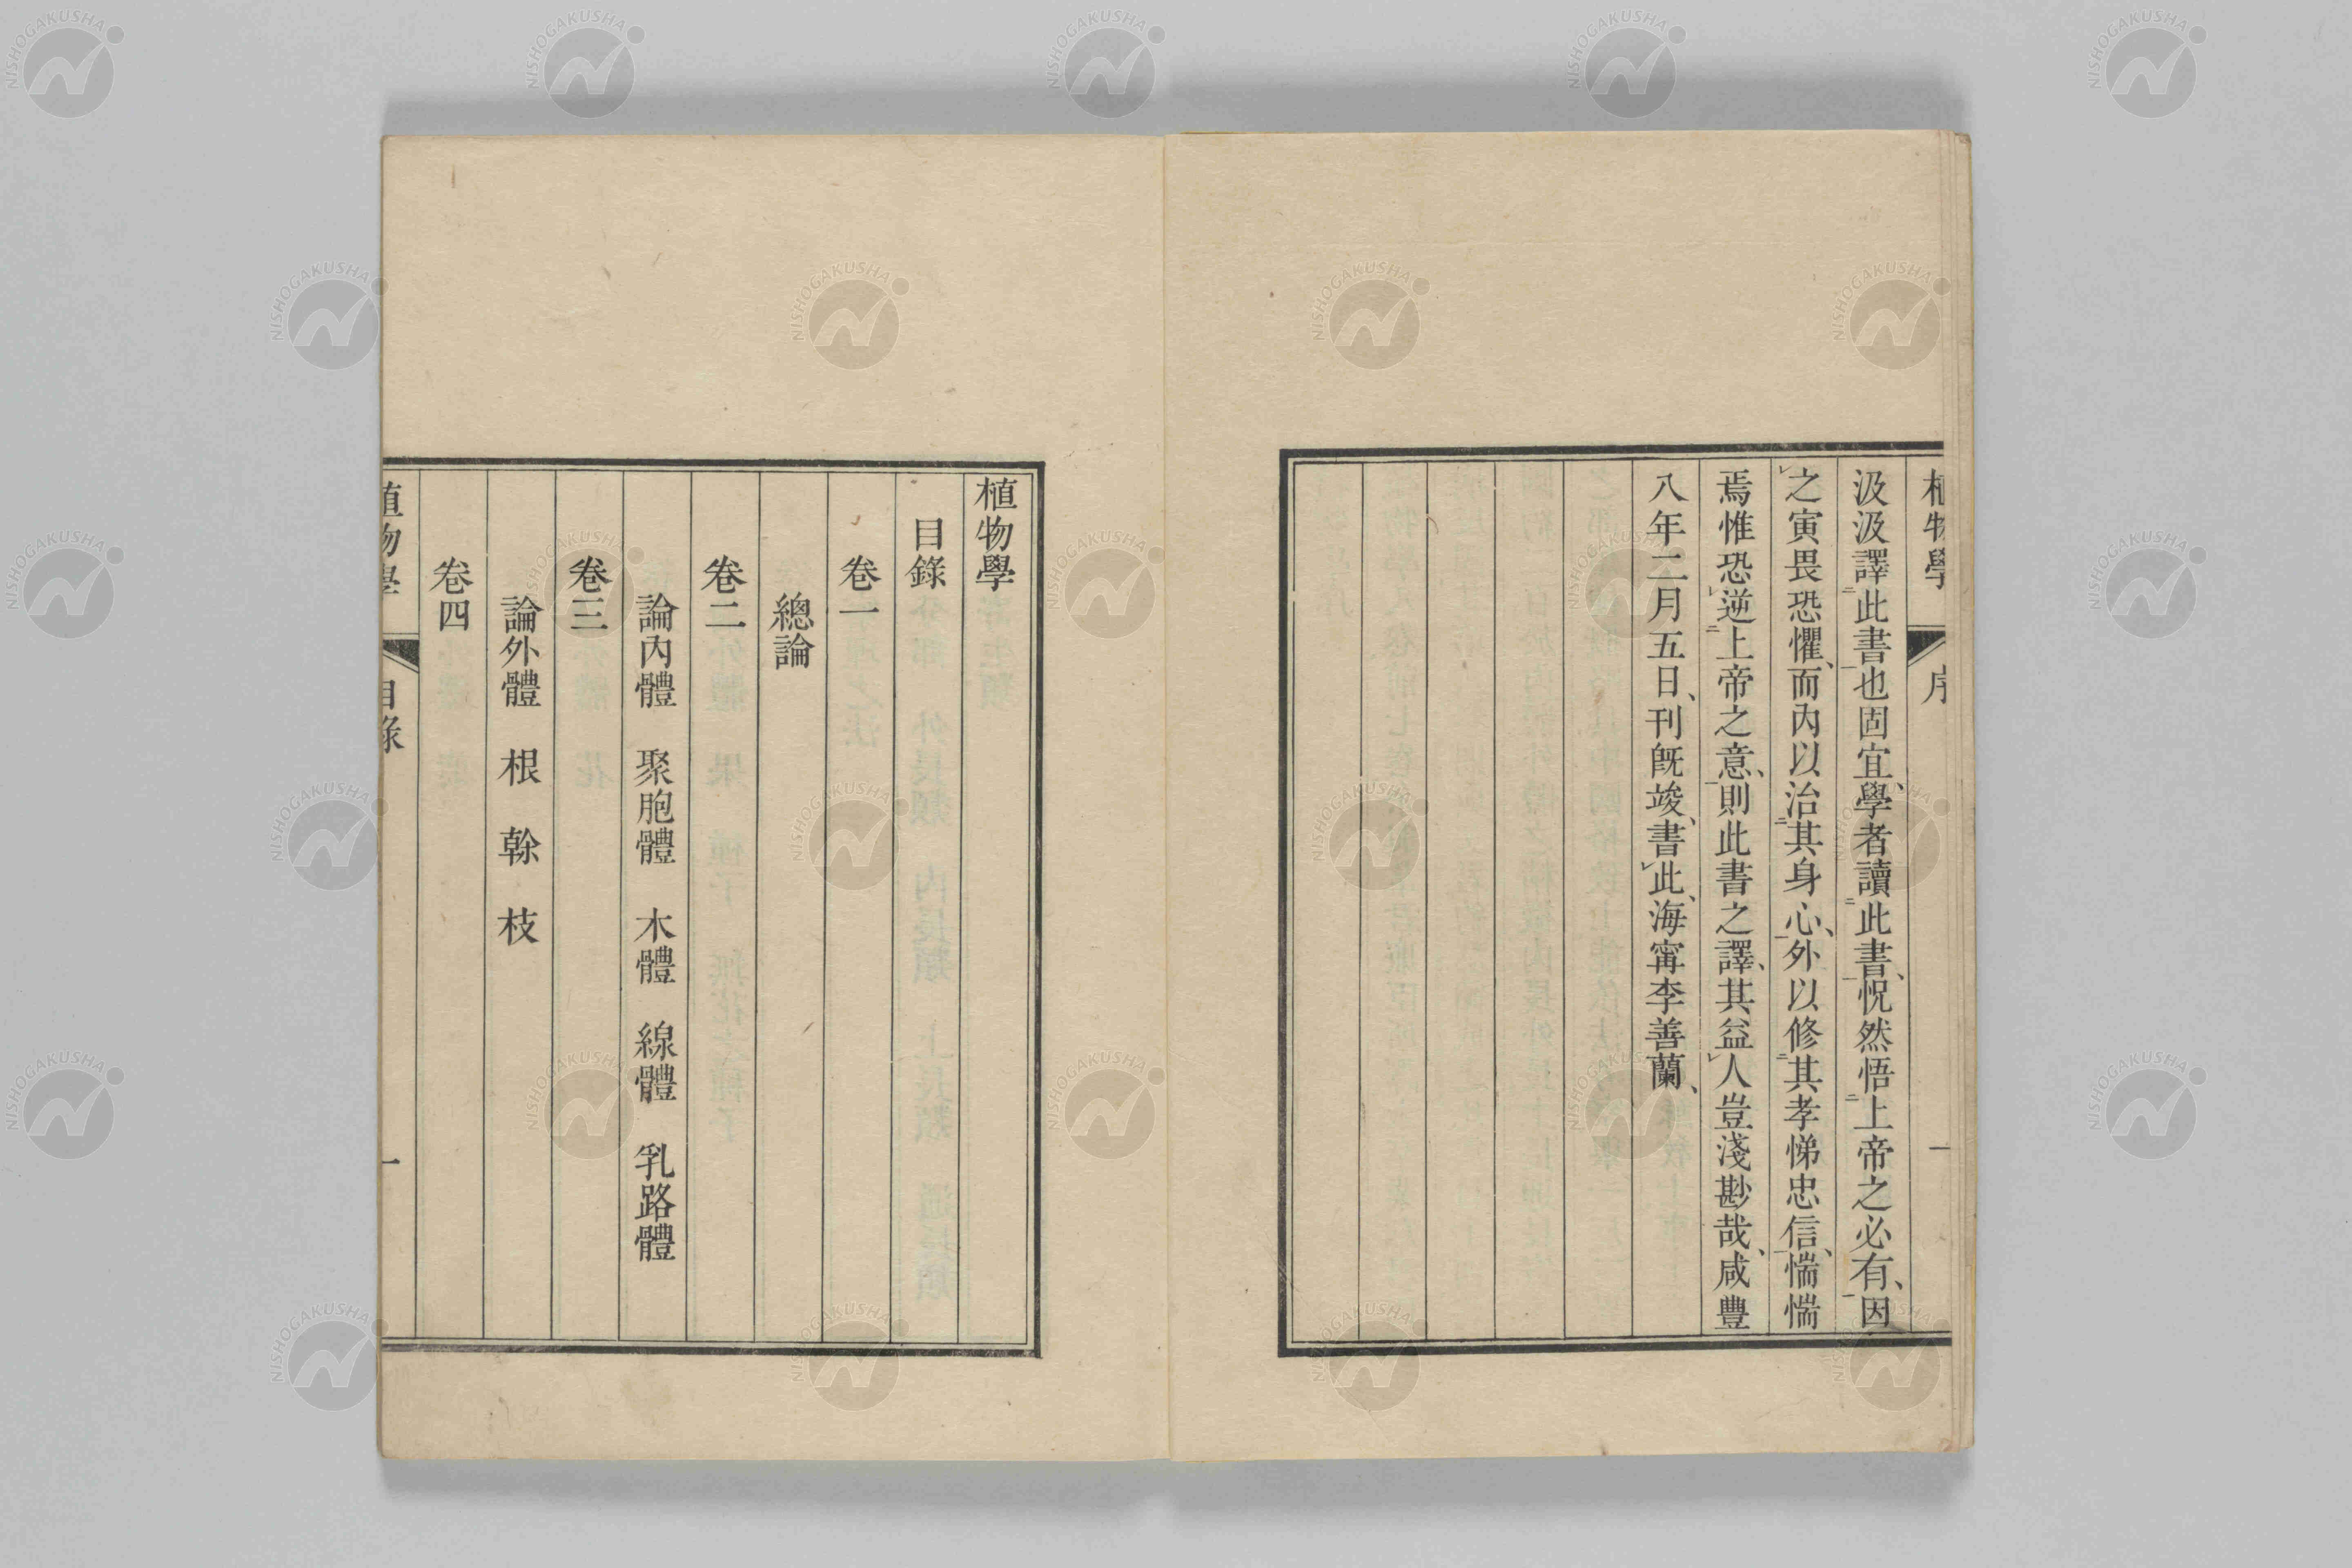 植物學
序
一
汲汲譯此書也固宜、學者讀此書、怳然悟上帝之必有、因
之寅畏恐懼、而內以治其身心、外以修其孝悌忠信、惴惴
焉惟恐逆上帝之意、則此書之譯、其益人豈淺尠哉、咸豐
八年二月五日、刊旣竣、書此、海甯李善蘭、
植物學
目錄
卷一
總論
卷二
論內體　聚胞體　木體　線體　乳路體
卷三
論外體　根　榦　枝
卷四
植物學
目錄
一
NISHOGAKUSHA